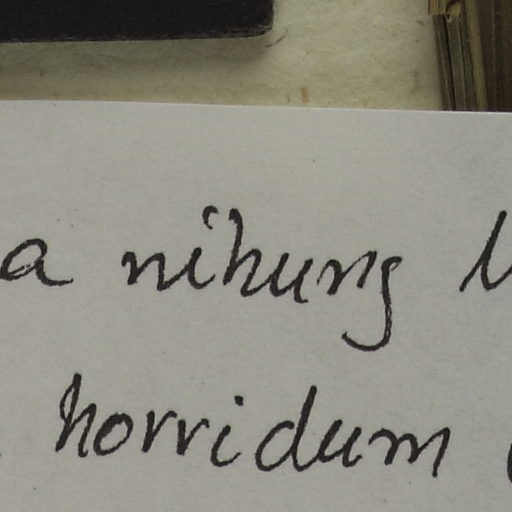 a nihung
horridum